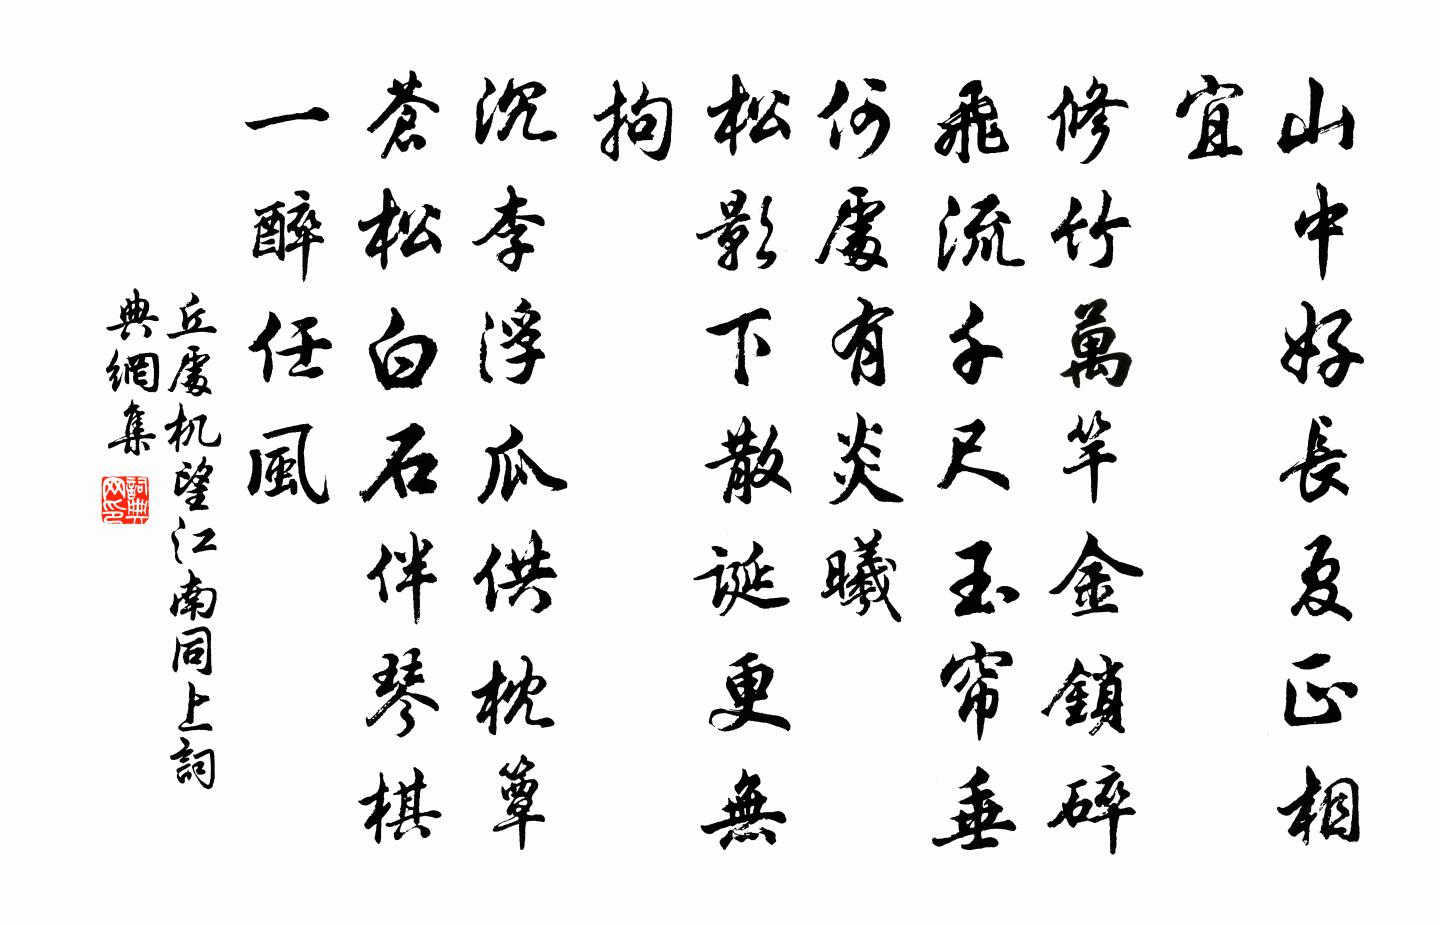 山中好長夏正相
宜
修竹萬竿金鎖碎
飛流千尺玉帘垂
何處有炎曦
松影下散誕更無
拘
沉李浮瓜供枕簟
蒼松白石伴琴棋
一醉任風
丘處机望江南同上詞
典網集
詞典
网印